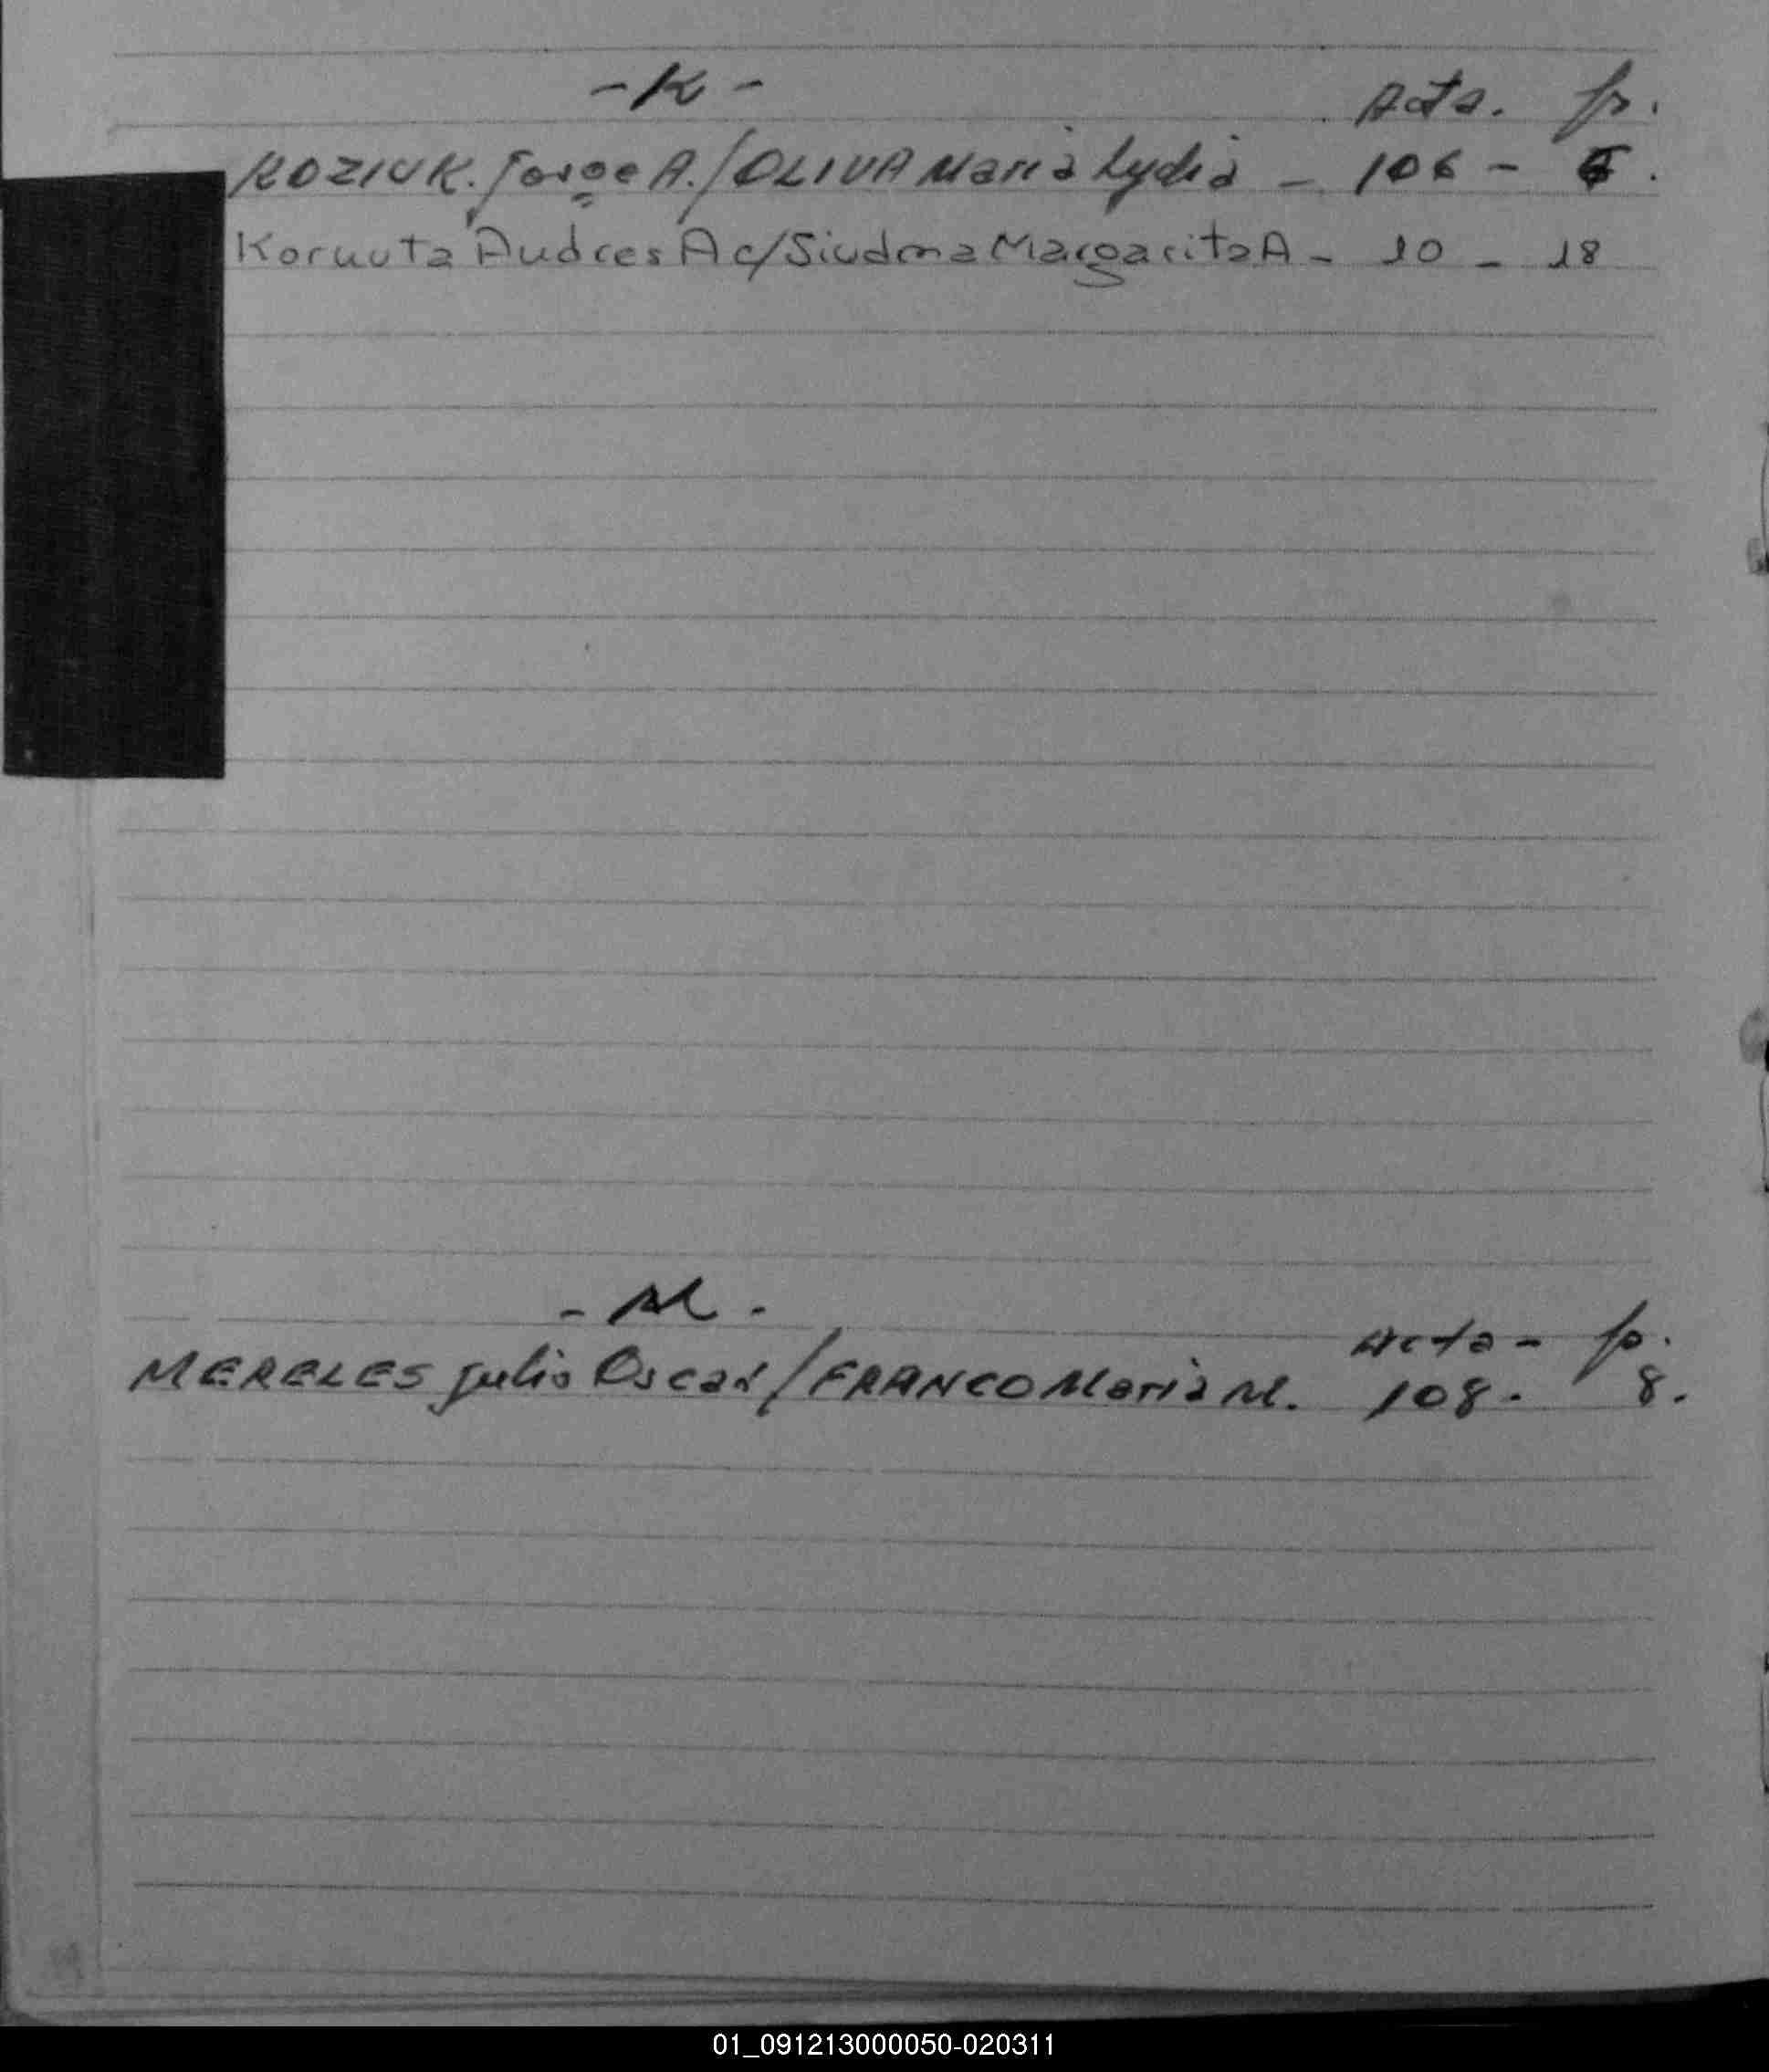 - K -
Acta. fo.
KOZIUK. Jorge A./OLIVA Maria Lydia - 106 - 6.
Kornuta Andres A c/Siudma Margarita A - 10 - 18
- M -
Acta - fo.
MERELES Julio Oscar/FRANCO Maria M. 108. 8.
01_091213000050-020311